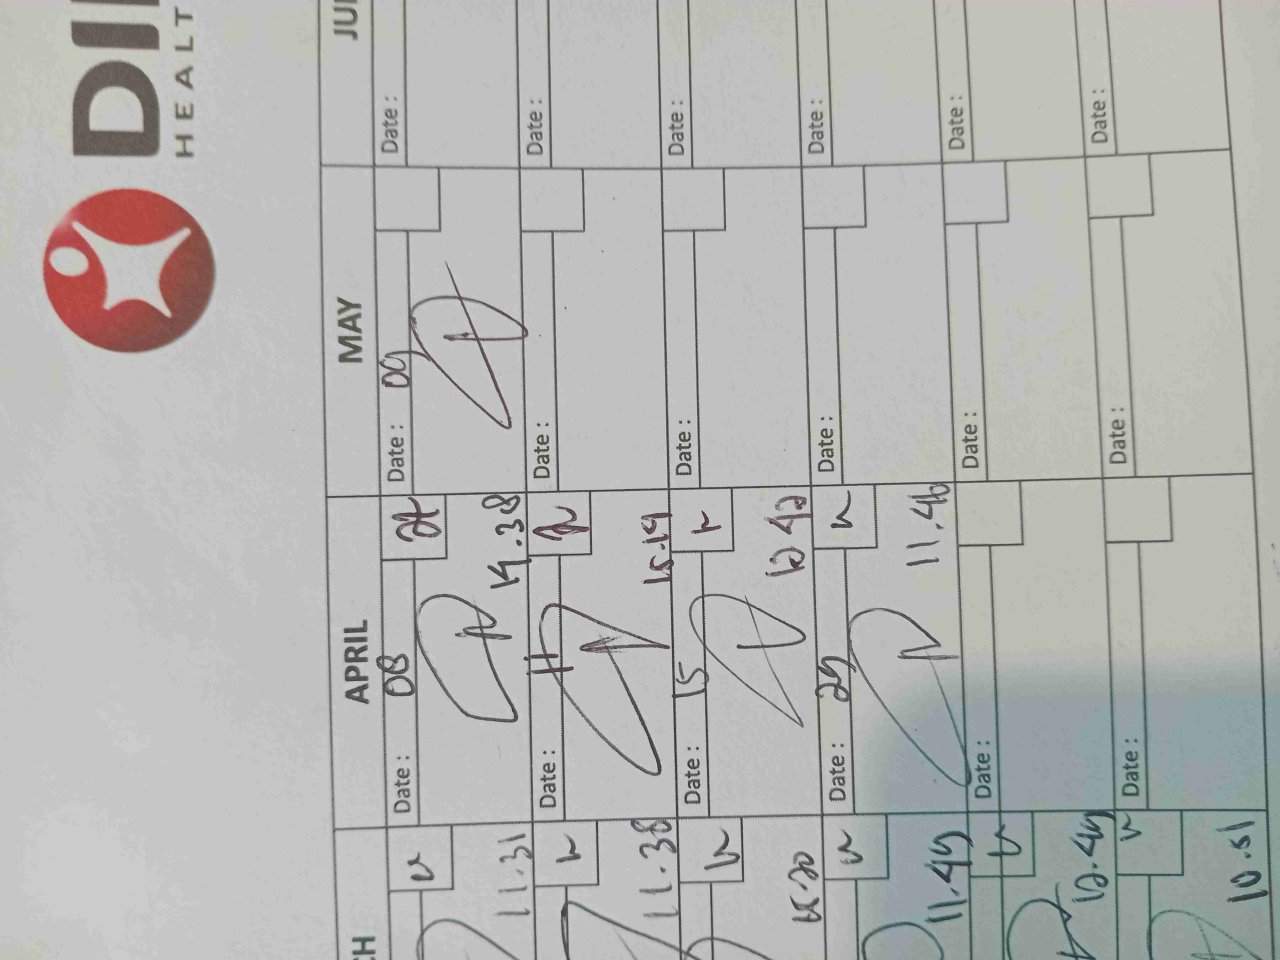 DI
HEALT
CH
APRIL
MAY
JU
11.31
Date : 08
14.38
Date : 09
Date :
11.38
Date : 11
15.19
Date :
Date :
15.20
Date : 15
12.42
Date :
Date :
11.49
Date : 29
11.46
Date :
Date :
12.49
Date :
Date :
Date :
10.51
Date :
Date :
Date :